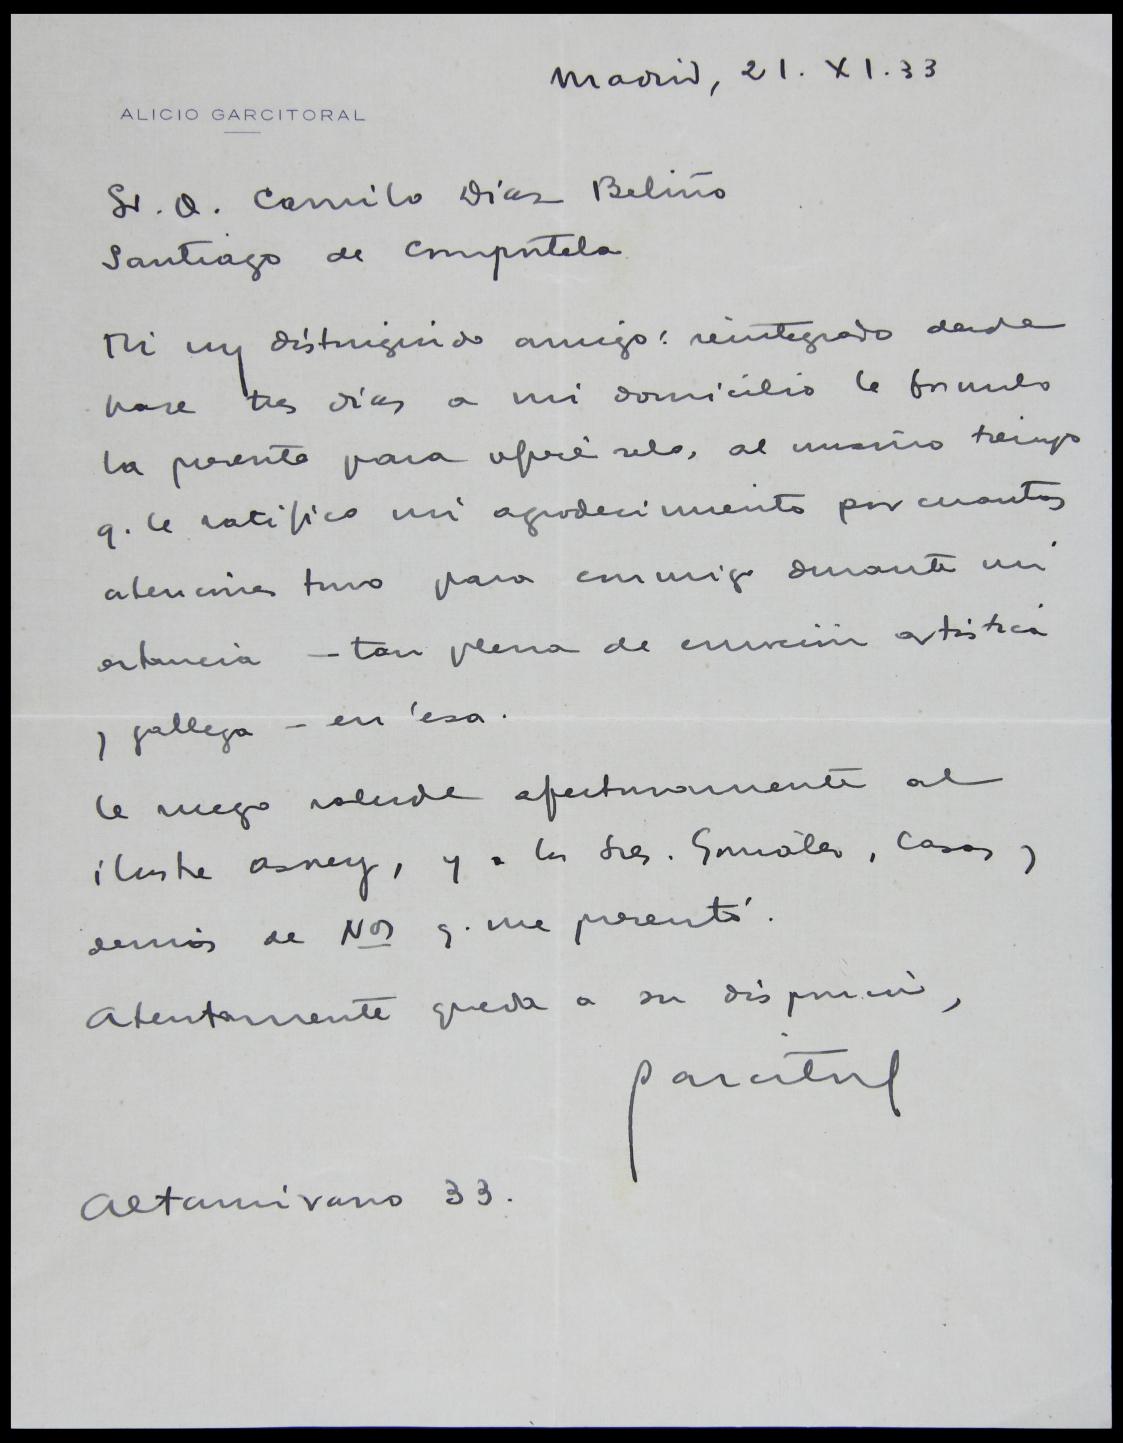 Madrid, 21. XI. 33
ALICIO GARCITORAL
Sr. D. Camilo Díaz Beliño
Santiago de Compostela
Mi muy distinguido amigo: reintegrado desde
hace tres días a mi domicilio le formulo
la presente para ofrecérselo, al mismo tiempo
q. le ratifico mi agradecimiento por cuantas
atenciones tuvo para conmigo durante mi
estancia – tan plena de emoción artística
y gallega – en esa.
Le ruego salude afectuosamente al
ilustre Asorey, y a los Sres. González, Casas y
demás de NÓS q. me presentó.
Atentamente queda a su disposición,
Garcitoral
Altamirano 33.